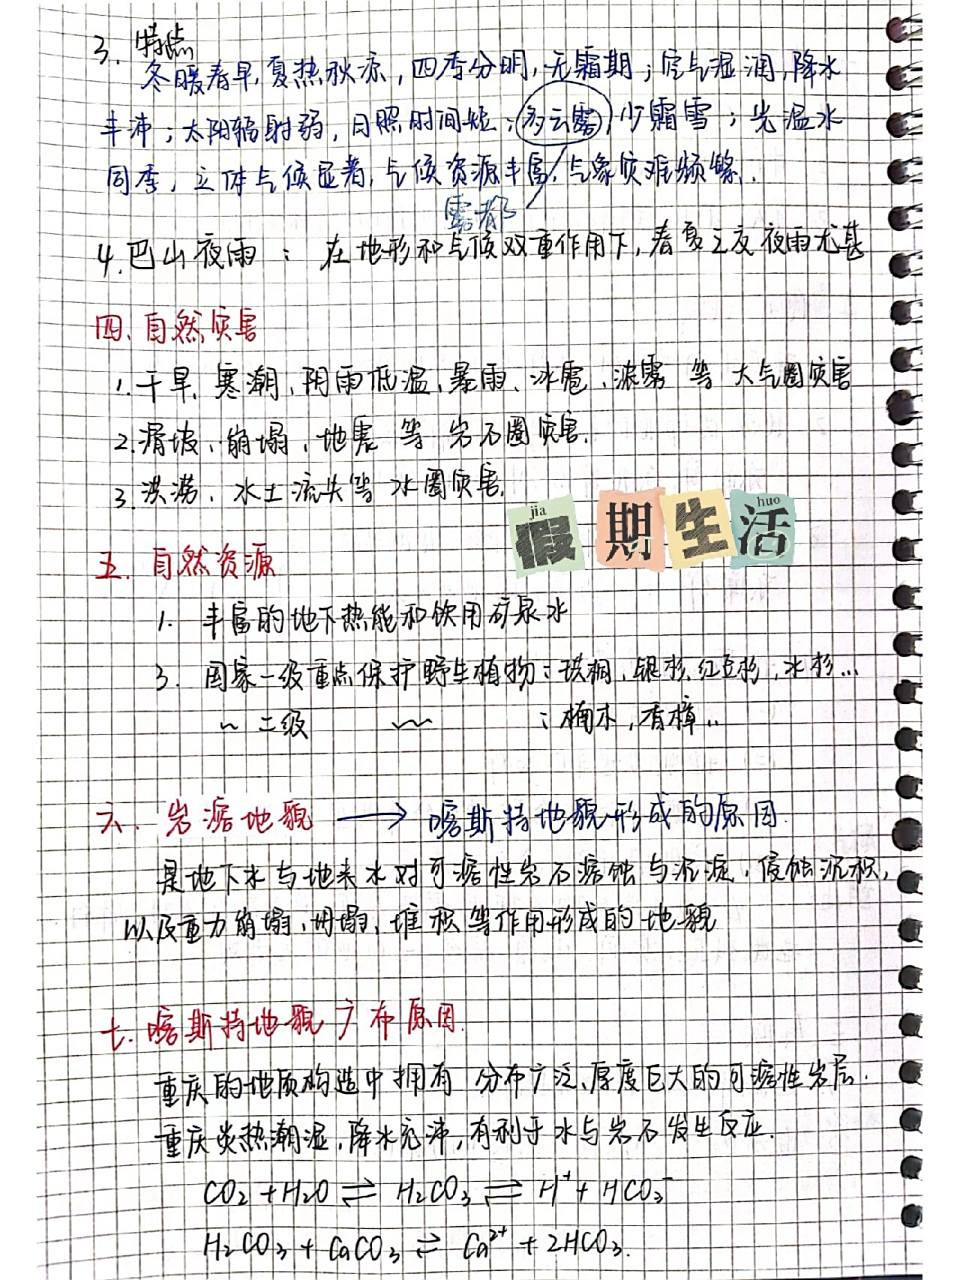 3. 特点
冬暖春早,夏热秋凉,四季分明,无霜期;空气湿润,降水
丰沛;太阳辐射弱,日照时间短;多云雾,少霜雪;光温水
同季,立体气候显著,气候资源丰富,气象灾难频繁.
雾都
4.巴山夜雨: 在地形和气候双重作用下,春夏之交夜雨尤甚
四.自然灾害
1.干旱、寒潮、阴雨低温、暴雨、冰雹、浓雾 等 大气圈灾害
2.滑坡、崩塌、地震 等 岩石圈灾害.
3.洪涝、水土流失等 水圈灾害.
jia huo
假期生活
五.自然资源
1. 丰富的地下热能和饮用矿泉水
3. 国家一级重点保护野生植物:珙桐,银杉,红豆杉,水杉...
~ 二级 ~~ :楠木,香樟...
六.岩溶地貌 → 喀斯特地貌形成的原因.
是地下水与地表水对可溶性岩石溶蚀与沉淀,侵蚀沉积,
以及重力崩塌,坍塌,堆积等作用形成的地貌
七.喀斯特地貌广布原因.
重庆的地质构造中拥有 分布广泛、厚度巨大的可溶性岩层.
重庆炎热潮湿,降水充沛,有利于水与岩石发生反应.
CO₂ + H₂O ⇌ H₂CO₃ ⇌ H⁺ + HCO₃⁻
H₂CO₃ + CaCO₃ ⇌ Ca²⁺ + 2HCO₃.